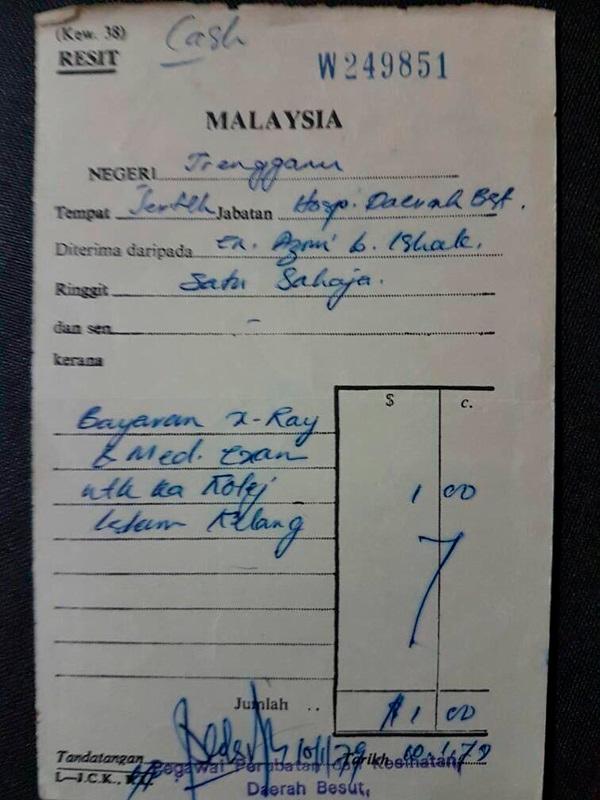 (Kew. 38)
RESIT
Cash
W249851
MALAYSIA
NEGERI Trengganu
Tempat Jerteh Jabatan Hosp. Daerah Bst.
Diterima daripada En. Azmi b. Ishak.
Ringgit Satu Sahaja.
dan sen -
kerana
$ c.
Bayaran x-Ray
& Med. Exam
utk ka Kolej 1 00
Islam Kelang
Jumlah .. $1 00
Tandatangan 10/1/79 Tarikh 10.1.79
L—J.C.K.,
Pegawai Perubatan dan Kesihatan,
Daerah Besut,